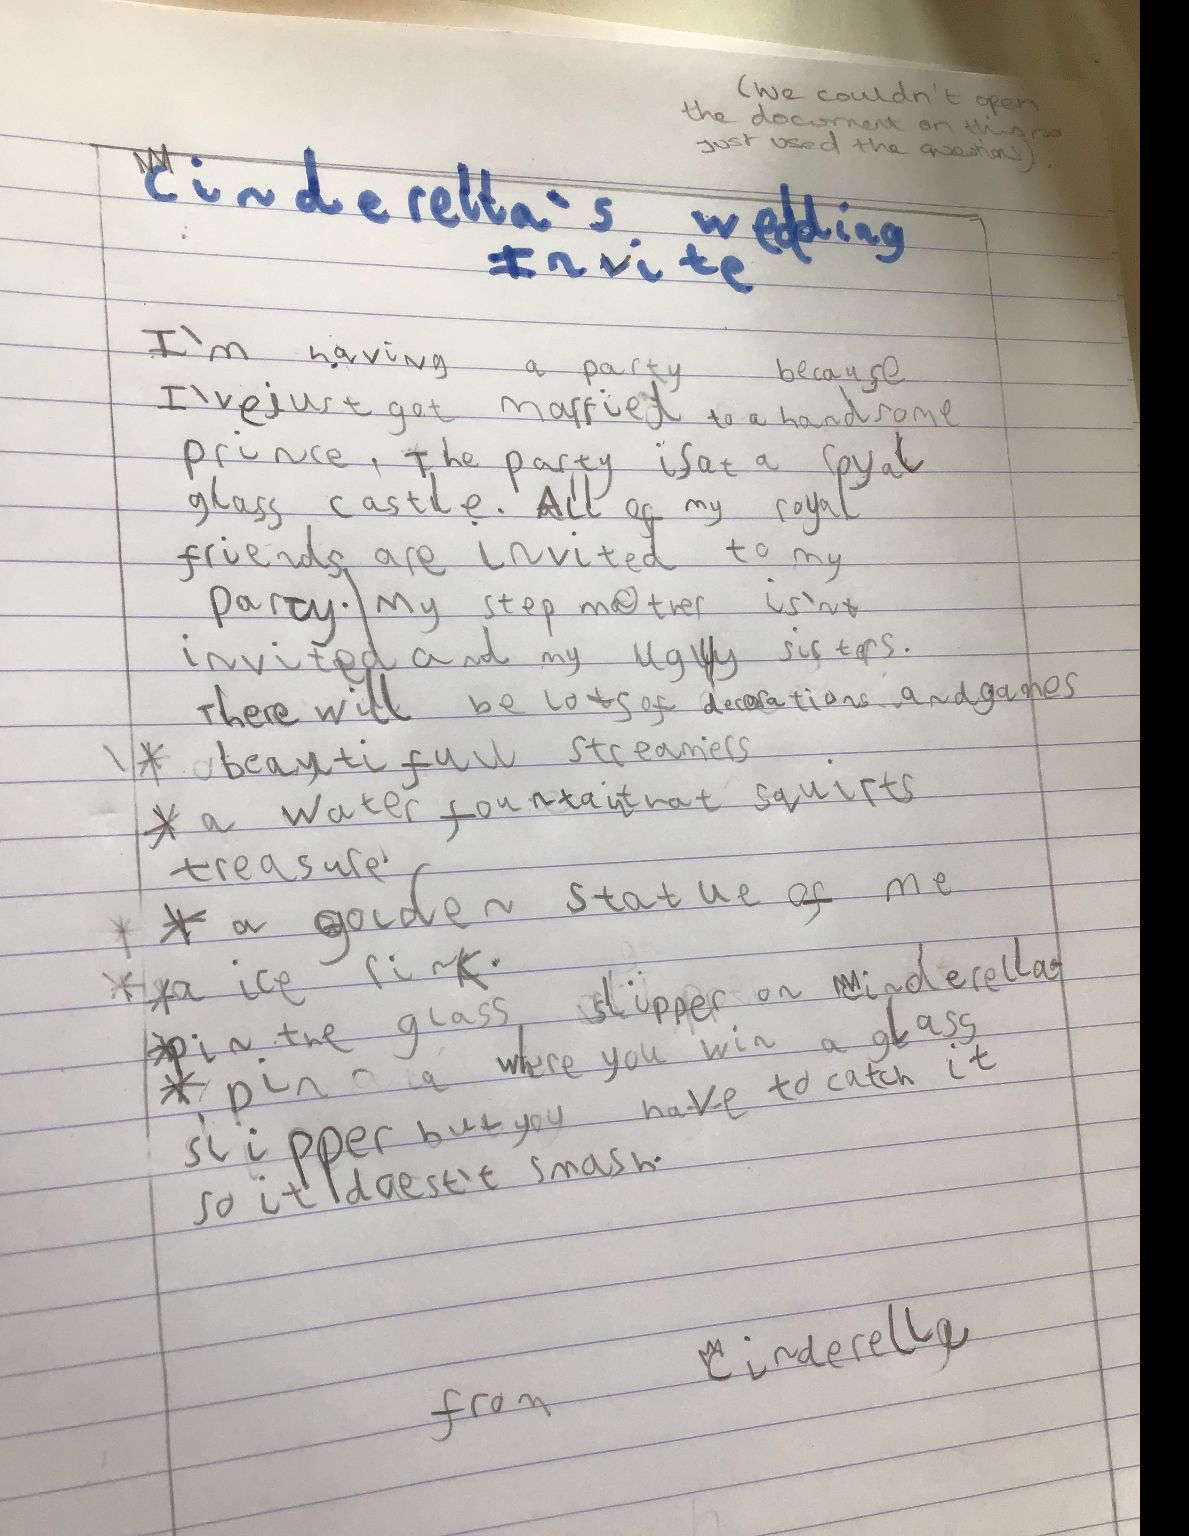 (We couldn't open
the document on this so
just used the questions).
Cinderella's wedding
Invite
I'm having a party because
I've just got married to a handsome
prince, The party is at a royal
glass castle. All of my royal
friends are invited to my
party. My step mother is'nt
invited and my Uguly sisters.
There will be lots of decorations and games
* beautifull streamers
* a water fountain that squirts
treasure
* a golden statue of me
* a ice rink.
* pin the glass slipper on Cinderella
* pin a where you win a glass
slipper but you have to catch it
so it doest't smash.
from Cinderella